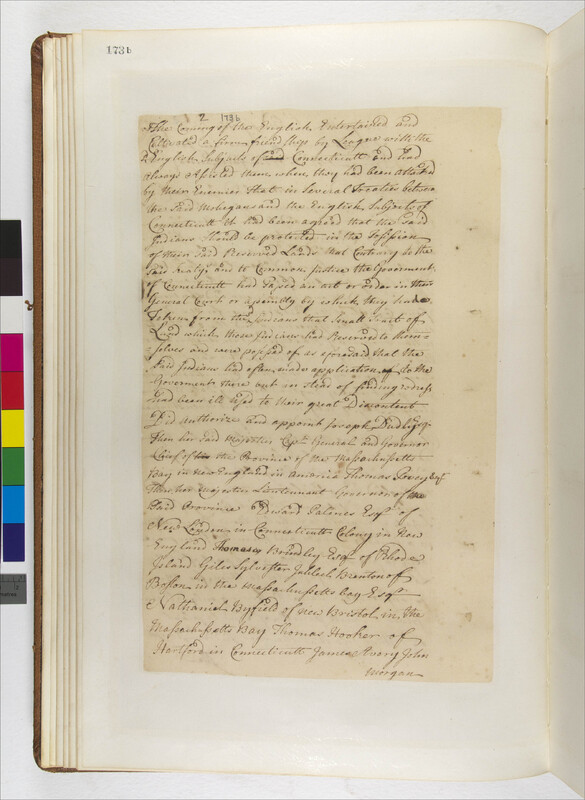 173b
2 173b
The Coming of the English Entertained and
Cultivated a firm friendship by League with the
English Subjects of Connecticutt and had
always assisted them, when they had been attacked
by their Enemies that in Several Treaties between
the Said Mohegans and the English Subjects of
Connecticutt it had been agreed that the said
Indians Should be protected in the Possession
of their Said Reserved Lands that Contrary to the
said treatys and to Common Justice the Goverment
of Connecticutt had passed an act or order in their
General Court or assembly by which they have
taken from the Indians that Small Tract of
Land which those Indians had Reserved to them-
selves and were possesd of as aforesaid that the
Said Indians had often made application to the
Goverment there but in stead of finding redress
had been ill used to their great Discontent
Did authorize and appoint Joseph Dudley Esqr
then her said Majesties Captn General and Governor
Chief of the Province of the Massachusetts
Bay in New England in America Thomas Povey Esqr
then her majesties Lieutennant Governor of the
Said Province Edward Palmes Esqr of
New London in Connecticutt Colony in New
England Thomas Brindley Esqr of Rhode
Island Giles Sylvester Jahleel Brenton of
Boston in the Massachussetts bay Esqr
Nathaniel Byfield of new Bristol in the
Massachussetts Bay Thomas Hooker of
Hartford in Connecticutt James Avery John
Morgan